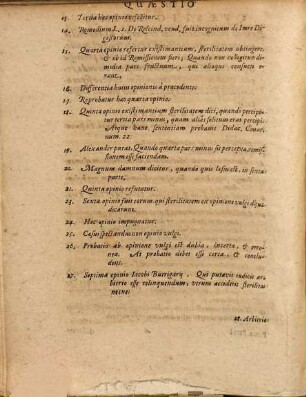 QUÆSTIO
13. Tertia hæc opinio refellitur.
14. Remedium L. 2. De Rescind. vend. fuit incognitum de Iure Digestorum.
15. Quarta opinio refertur existimantium, sterilitatem obtingere,
& ob id Remissionem fieri, Quando non colligitur dimidia
pars fructuum, qui aliàs
16. Differentia huius opinionis à præcedenti.
17. Reprobatur hæc quarta opinio.
18. Quinta opinio existimantium sterilitatem dici, quando percipitur
tertia pars minus, quam aliàs solitum erat percipi.
Atque hanc sententiam probant Doctor, Conar.
num. 22.
19. Alexander putat, Quando quarta pars minus sit percepta, remissionem
esse faciendam.
20. Magnum damnum dicitur, quando quis læsus est, in sexta
parte.
21. Quinta opinio refutatur.
23. Sexta opinio fuit eorum qui sterilitatem ex opinione vulgi dijudicarunt.
24. Hæc opinio impugnatur.
25. Casus spectandus non opinio vulgi.
26. Probatio ab opinione vulgi est dubia, incerta, &
At probatio debet esse certa, & concludens.
27. Septima opinio Iacobi Butrigarij, Qui putavit iudicis arbitrio
esse relinquendum, utrum acciderit sterilitas